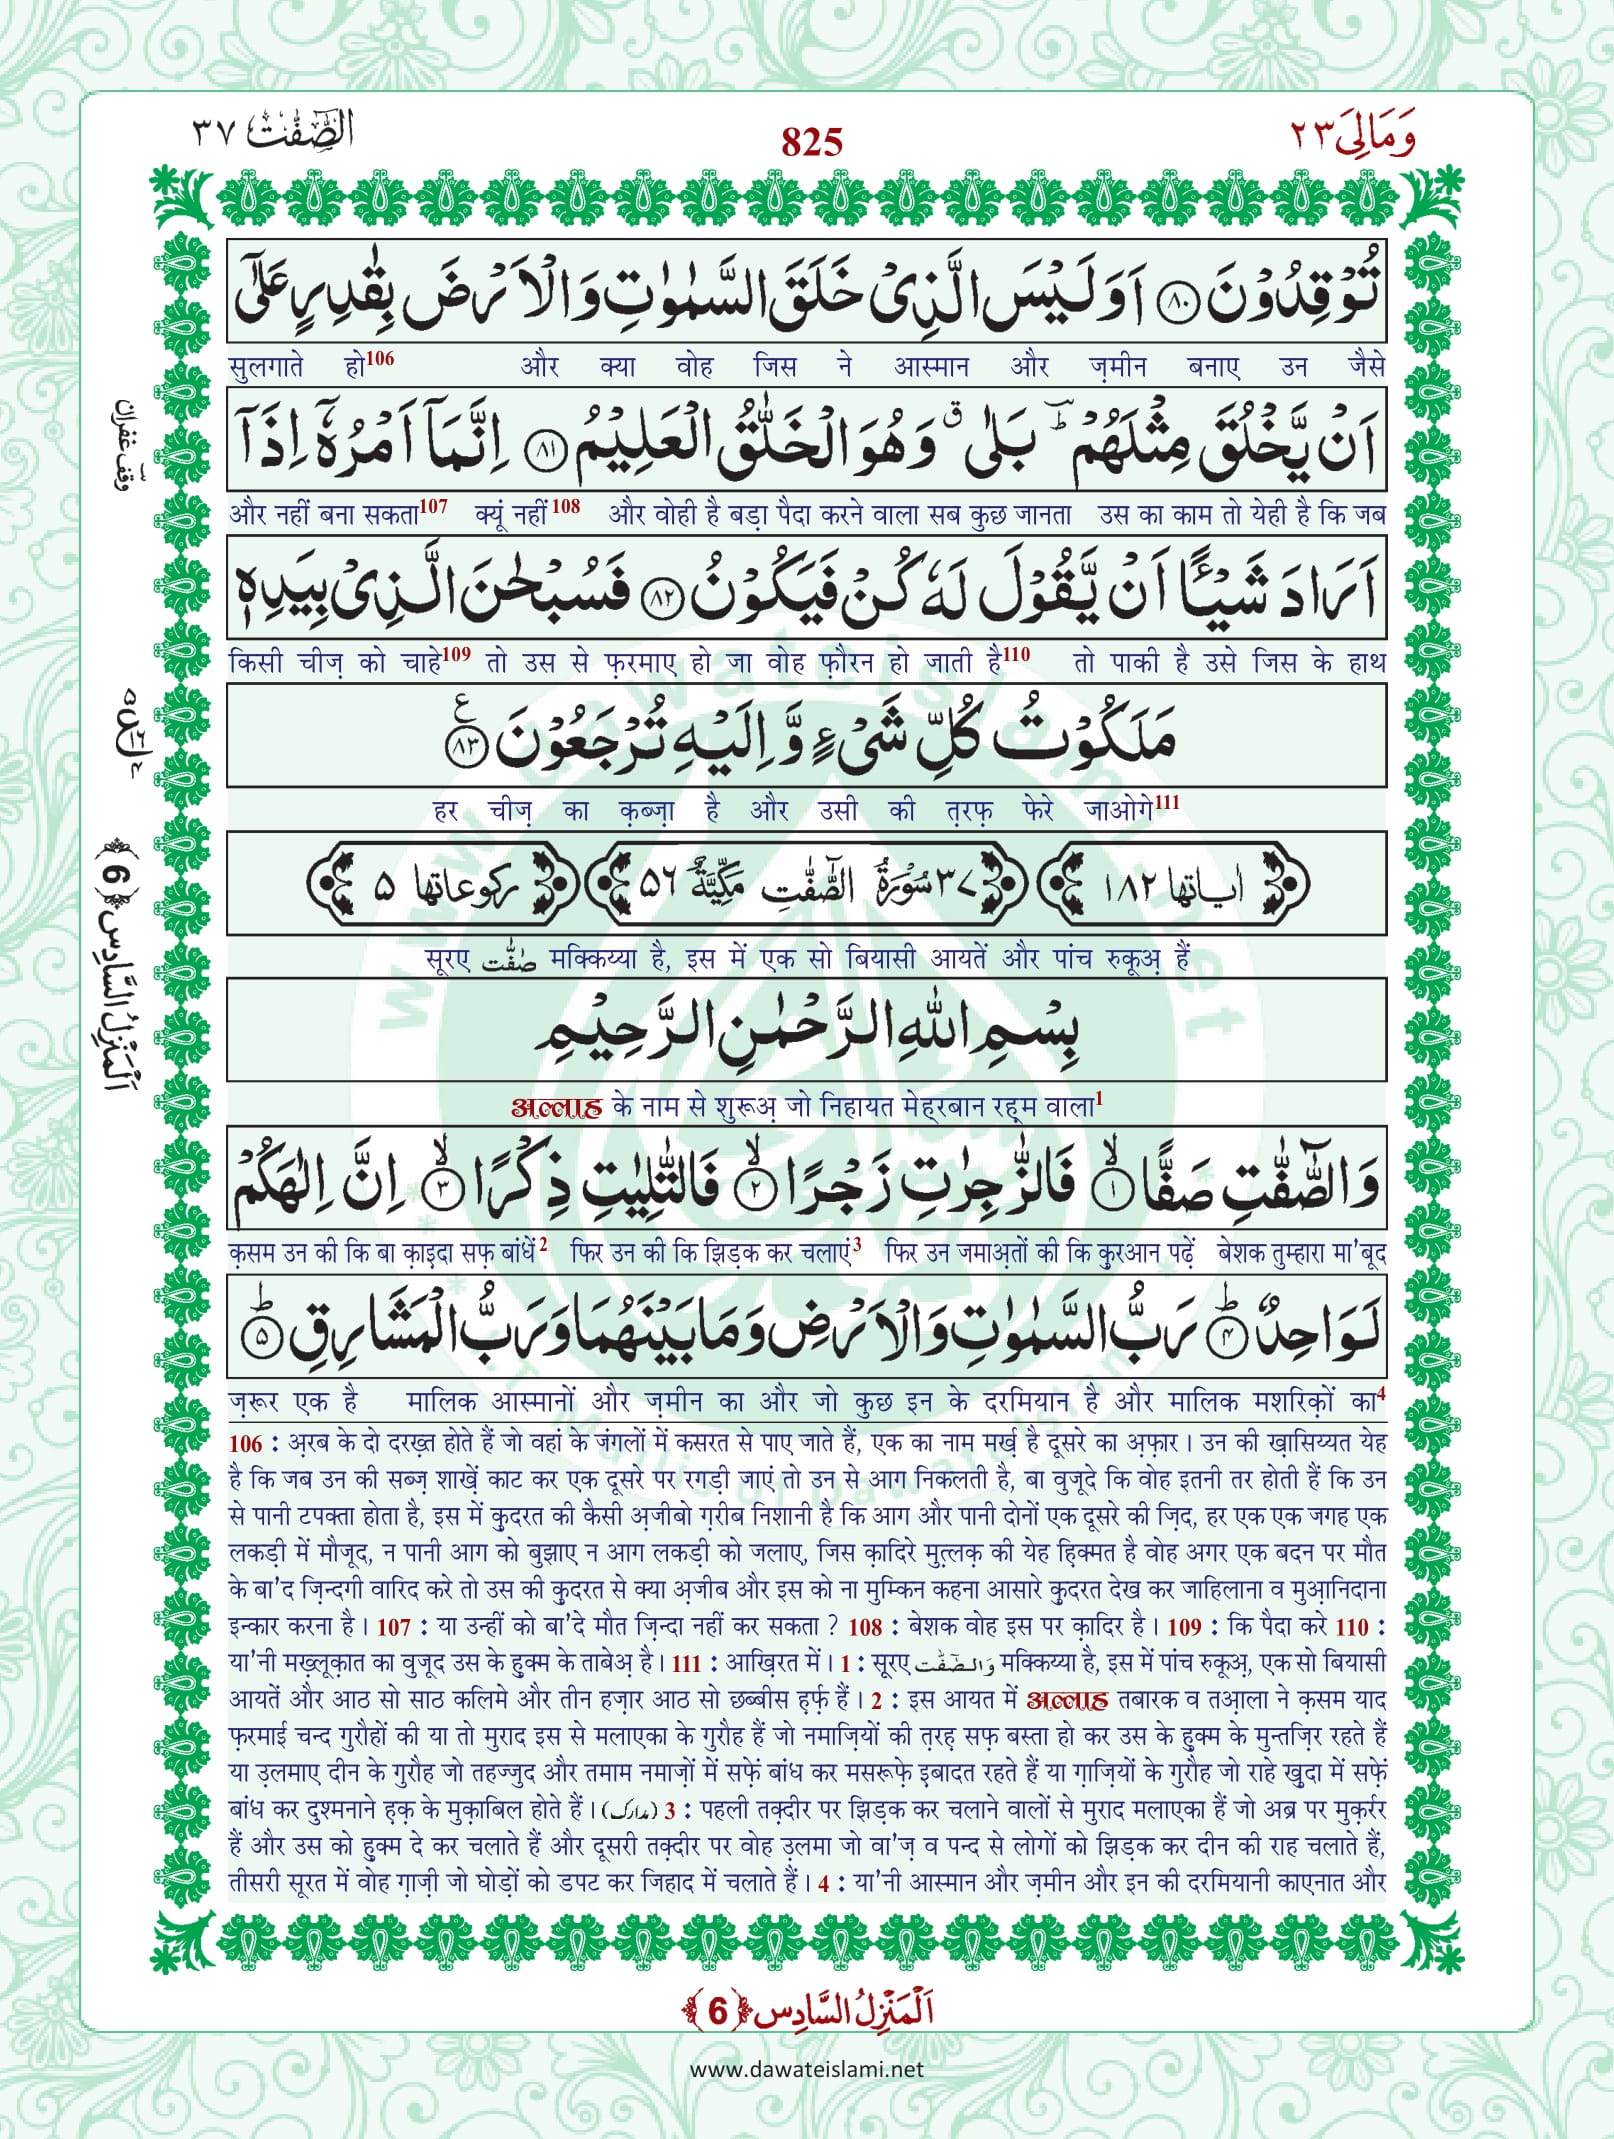 وَمَالِیَ ٢٣
825
الصّٰٓفّٰت ٣٧
تُوْقِدُوْنَ ﴿۸۰﴾ اَوَلَیْسَ الَّذِیْ خَلَقَ السَّمٰوٰتِ وَالْاَرْضَ بِقٰدِرٍ عَلٰۤى
सुलगाते हो106 और क्या वोह जिस ने आस्मान और ज़मीन बनाए उन जैसे
اَنْ یَّخْلُقَ مِثْلَهُمْ ؕ بَلٰى ۗ وَهُوَ الْخَلّٰقُ الْعَلِیْمُ ﴿۸۱﴾ اِنَّمَاۤ اَمْرُهٗۤ اِذَاۤ
और नहीं बना सकता107 क्यूं नहीं108 और वोही है बड़ा पैदा करने वाला सब कुछ जानता उस का काम तो येही है कि जब
اَرَادَ شَیْـًٔا اَنْ یَّقُوْلَ لَهٗ كُنْ فَیَكُوْنُ ﴿۸۲﴾ فَسُبْحٰنَ الَّذِیْ بِیَدِهٖ
किसी चीज़ को चाहे109 तो उस से फ़रमाए हो जा वोह फ़ौरन हो जाती है110 तो पाकी है उसे जिस के हाथ
مَلَكُوْتُ كُلِّ شَیْءٍ وَّ اِلَیْهِ تُرْجَعُوْنَ ﴿۸۳﴾ ع
हर चीज़ का क़ब्ज़ा है और उसी की त़रफ़ फेरे जाओगे111
اٰیاتها ١٨٢ ٣٧ سُوْرَةُ الصّٰٓفّٰتِ مَكِّیَّةٌ ٥٦ رکوعاتها ٥
सूरए صٰٓفّٰت मक्किय्या है, इस में एक सो बियासी आयतें और पांच रुकूअ़ हैं
بِسْمِ اللّٰهِ الرَّحْمٰنِ الرَّحِیْمِ
अल्लाह के नाम से शुरूअ़ जो निहायत मेहरबान रह़म वाला1
وَالصّٰٓفّٰتِ صَفًّا ﴿۱﴾ۙ فَالزّٰجِرٰتِ زَجْرًا ﴿۲﴾ۙ فَالتّٰلِیٰتِ ذِكْرًا ﴿۳﴾ۙ اِنَّ اِلٰهَكُمْ
क़सम उन की कि बा क़ाइदा सफ़ बांधें2 फिर उन की कि झिड़क कर चलाएं3 फिर उन जमाअ़तों की कि क़ुरआन पढ़ें बेशक तुम्हारा मा'बूद
لَوَاحِدٌ ﴿۴﴾ؕ رَبُّ السَّمٰوٰتِ وَالْاَرْضِ وَمَا بَیْنَهُمَا وَرَبُّ الْمَشَارِقِ ﴿۵﴾ؕ
ज़रूर एक है मालिक आस्मानों और ज़मीन का और जो कुछ इन के दरमियान है और मालिक मशरिक़ों का4
106 : अ़रब के दो दरख़्त होते हैं जो वहां के जंगलों में कसरत से पाए जाते हैं, एक का नाम मर्ख़ है दूसरे का अ़फ़ार । उन की ख़ासिय्यत येह
है कि जब उन की सब्ज़ शाख़ें काट कर एक दूसरे पर रगड़ी जाएं तो उन से आग निकलती है, बा वुजूदे कि वोह इतनी तर होती हैं कि उन
से पानी टपक्ता होता है, इस में क़ुदरत की कैसी अ़जीबो ग़रीब निशानी है कि आग और पानी दोनों एक दूसरे की ज़िद, हर एक एक जगह एक
लकड़ी में मौजूद, न पानी आग को बुझाए न आग लकड़ी को जलाए, जिस क़ादिरे मुत़्लक़ की येह ह़िक्मत है वोह अगर एक बदन पर मौत
के बा'द ज़िन्दगी वारिद करे तो उस की क़ुदरत से क्या अ़जीब और इस को ना मुम्किन कहना आसारे क़ुदरत देख कर जाहिलाना व मुआ़निदाना
इन्कार करना है । 107 : या उन्हीं को बा'दे मौत ज़िन्दा नहीं कर सकता ? 108 : बेशक वोह इस पर क़ादिर है । 109 : कि पैदा करे 110 :
या'नी मख़्लूक़ात का वुजूद उस के ह़ुक्म के ताबेअ़ है । 111 : आख़िरत में । 1 : सूरए وَالصّٰٓفّٰت मक्किय्या है, इस में पांच रुकूअ़, एक सो बियासी
आयतें और आठ सो साठ कलिमे और तीन हज़ार आठ सो छब्बीस ह़र्फ़ हैं । 2 : इस आयत में अल्लाह तबारक व तआ़ला ने क़सम याद
फ़रमाई चन्द गुरौहों की या तो मुराद इस से मलाएका के गुरौह हैं जो नमाज़ियों की त़रह़ सफ़ बस्ता हो कर उस के ह़ुक्म के मुन्तज़िर रहते हैं
या उ़लमाए दीन के गुरौह जो तहज्जुद और तमाम नमाज़ों में सफ़ें बांध कर मसरूफ़े इ़बादत रहते हैं या ग़ाज़ियों के गुरौह जो राहे ख़ुदा में सफ़ें
बांध कर दुश्मनाने ह़क़ के मुक़ाबिल होते हैं । (مدارک) 3 : पहली तक़्दीर पर झिड़क कर चलाने वालों से मुराद मलाएका हैं जो अब्र पर मुक़र्रर
हैं और उस को ह़ुक्म दे कर चलाते हैं और दूसरी तक़्दीर पर वोह उ़लमा जो वा'ज़ व पन्द से लोगों को झिड़क कर दीन की राह चलाते हैं,
तीसरी सूरत में वोह ग़ाज़ी जो घोड़ों को डपट कर जिहाद में चलाते हैं । 4 : या'नी आस्मान और ज़मीन और इन की दरमियानी काएनात और
وقف غفران
اَلْمَنْزِلُ السَّادِس ﴿6﴾
اَلْمَنْزِلُ السَّادِس ﴿6﴾
www.dawateislami.net